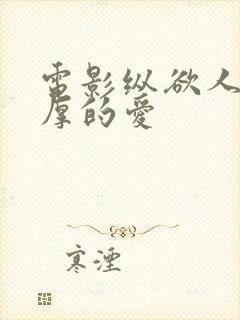 电影纵欲人
厚的爱
寒湮